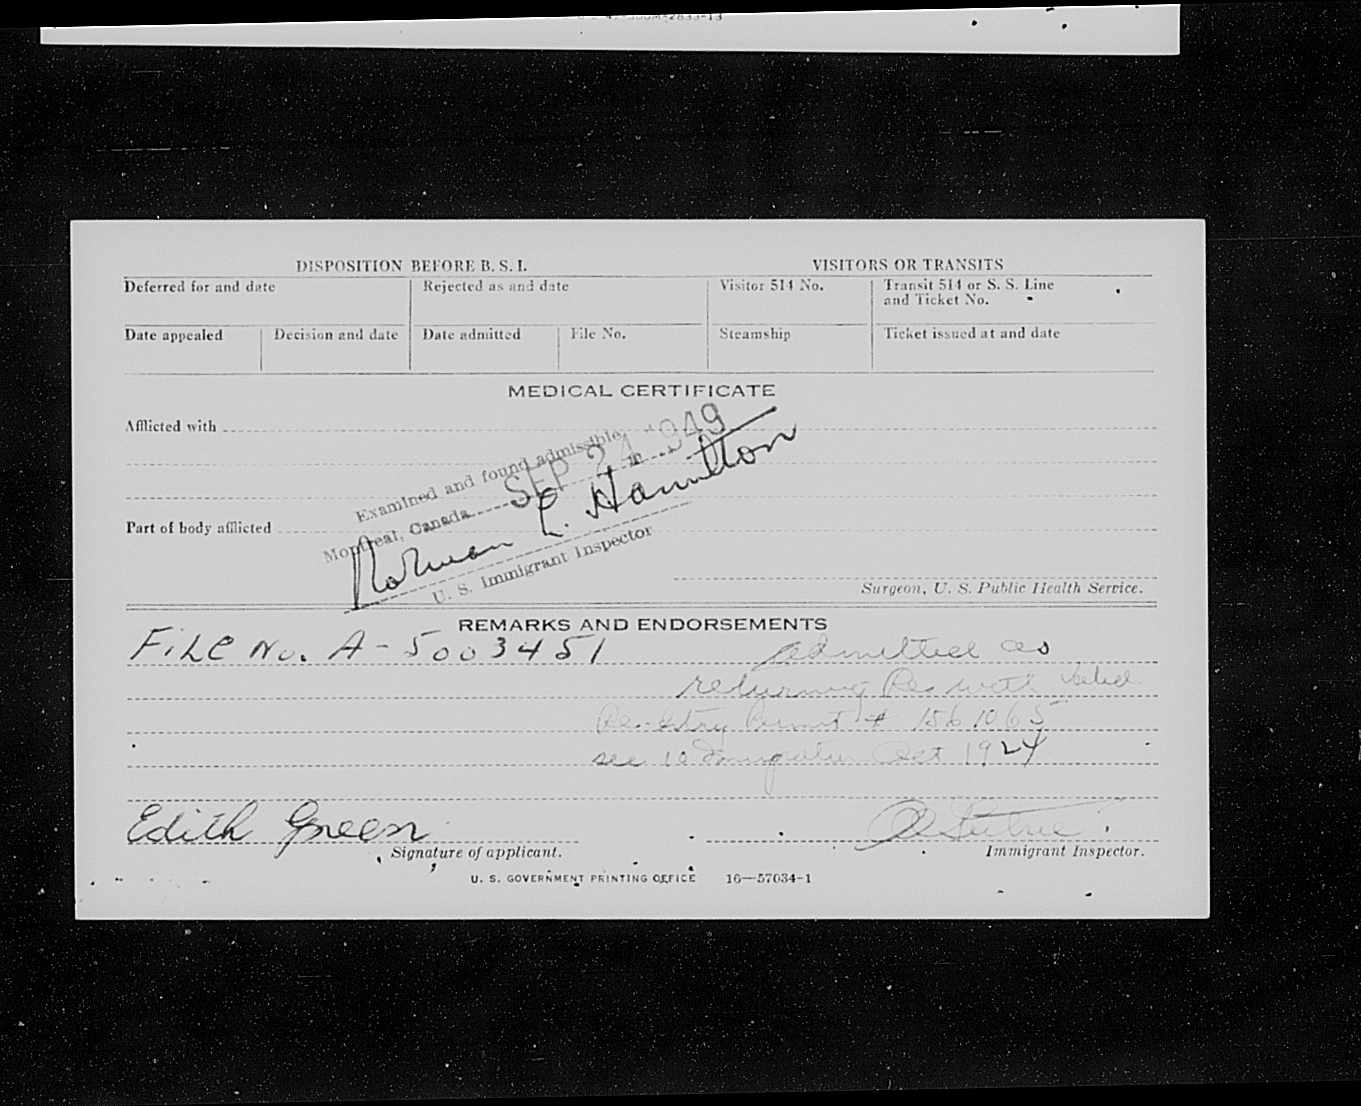 DISPOSITION BEFORE B. S. I. VISITORS OR TRANSITS
Deferred for and date Rejected as and date Visitor 514 No. Transit 514 or S. S. Line and Ticket No.
Date appealed Decision and date Date admitted File No. Steamship Ticket issued at and date
MEDICAL CERTIFICATE
Afflicted with
Examined and found admissible
Montreal, Canada SEP 24 1949
Norman E. Hamilton
U. S. Immigrant Inspector
Part of body afflicted
Surgeon, U. S. Public Health Service.
REMARKS AND ENDORSEMENTS
File No. A-5003451 admitted as
returning Res with valid
Re-entry Permit # 1561065
see 1924
Edith Green
Signature of applicant. Immigrant Inspector.
U. S. GOVERNMENT PRINTING OFFICE 16—57034-1